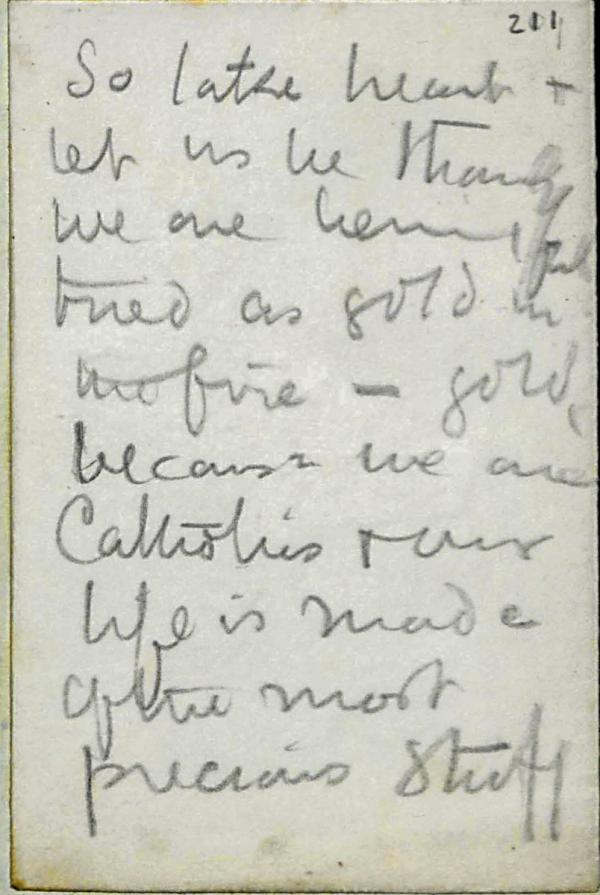 211
So take heart +
let us be thankful
we are being
tried as gold in
the fire – gold,
because we are
Catholics + our
life is made
of the most
precious stuff